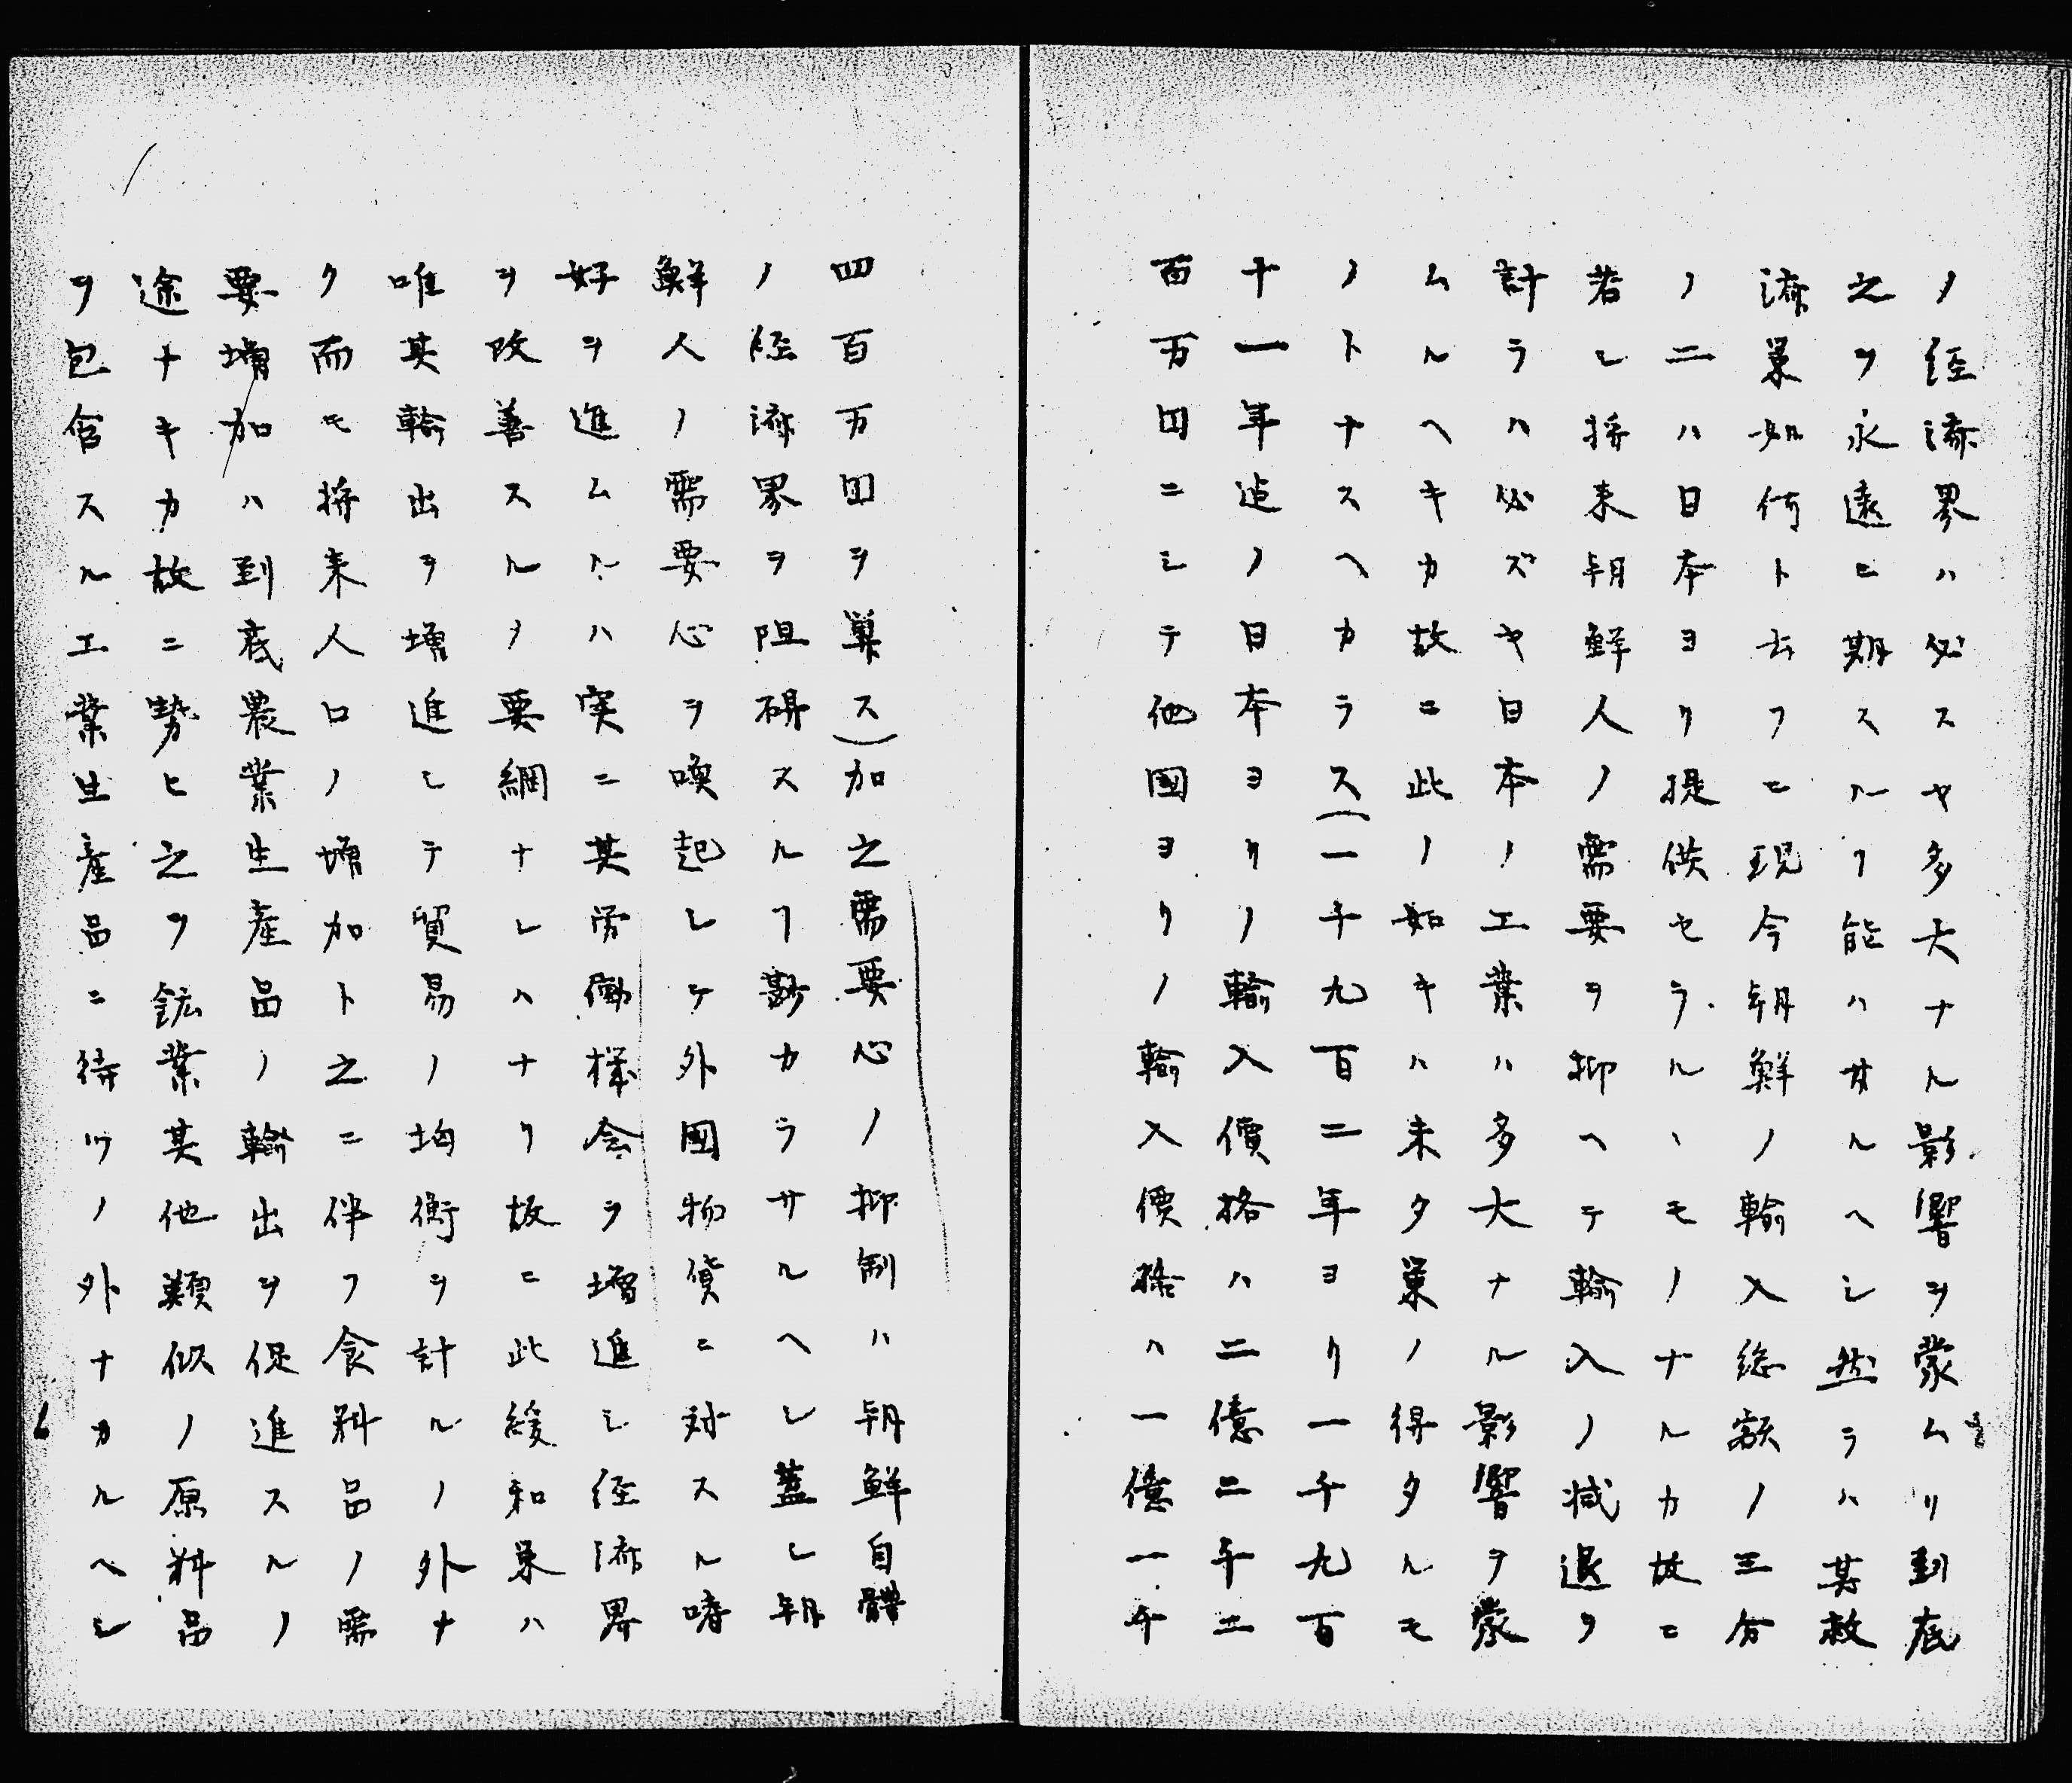 ノ経済界ハ必スヤ多大ナル影響ヲ蒙ムリ到底
之ヲ永遠ニ期スルヿ能ハサルヘシ然ラハ其救
済策如何ト云フニ現今朝鮮ノ輸入総額ノ三分
ノ二ハ日本ヨリ提供セラルヽモノナルカ故ニ
若シ将来朝鮮人ノ需要ヲ抑ヘテ輸入ノ減退ヲ
計ラハ必ズヤ日本ノ工業ハ多大ナル影響ヲ蒙
ムルヘキカ故ニ此ノ如キハ未タ策ノ得タルモ
ノトナスヘカラス(一千九百二年ヨリ一千九百
十一年迄ノ日本ヨリノ輸入價格ハ二億二千二
百万円ニシテ他國ヨリノ輸入價格ハ一億一千
四百万円ヲ算ス)加之需要心ノ抑制ハ朝鮮自體
ノ経済界ヲ阻碍スルヿ尠カラサルヘシ蓋シ朝
鮮人ノ需要心ヲ喚起シテ外國物貨ニ対スル嗜
好ヲ進ムルハ実ニ其労働機会ヲ増進シ経済界
ヲ改善スルノ要綱ナレハナリ故ニ此緩和策ハ
唯其輸出ヲ増進シテ貿易ノ均衡ヲ計ルノ外ナ
ク而モ将来人口ノ増加ト之ニ伴フ食料品ノ需
要増加ハ到底農業生産品ノ輸出ヲ促進スルノ
途ナキカ故ニ勢ヒ之ヲ鉱業其他類似ノ原料品
ヲ包含スル工業生産品ニ待ツノ外ナカルヘシ